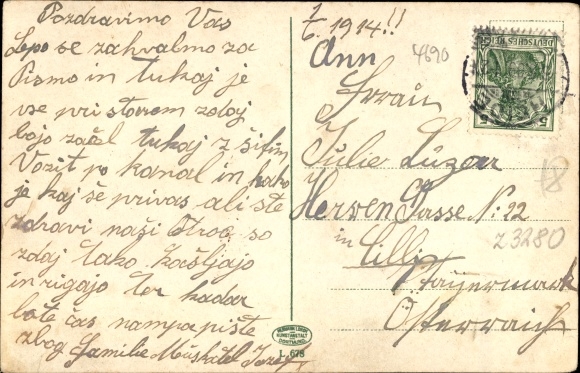 Pozdravimo Vas
Lepo se zahvalmo za
Pismo in tukaj je
vse pri starem zdaj
bojo začel tukaj z šifun
Vozit po kanal in kako
je kaj še privas ali ste
zdravi naši otroc so
zdaj tako kašljajo
in rigajo ter kadar
bote čas nam pa pište
zbog Familie Jozef
1914!!
Ann
4690
Frrau
Julie Luzerr
Herren Gasse No: 22
in Cilli
Stayermark
Österraich
Z3280
DEUTSCHES REICH
5 5
DORTMUND
L. 678